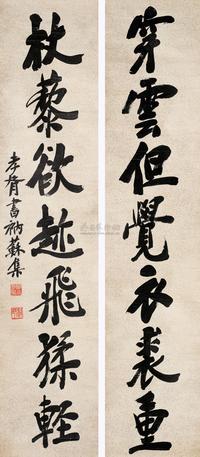 穿雲但覺衣裘重
杖藜欲趁飛猱輕
孝胥書衲蘇集